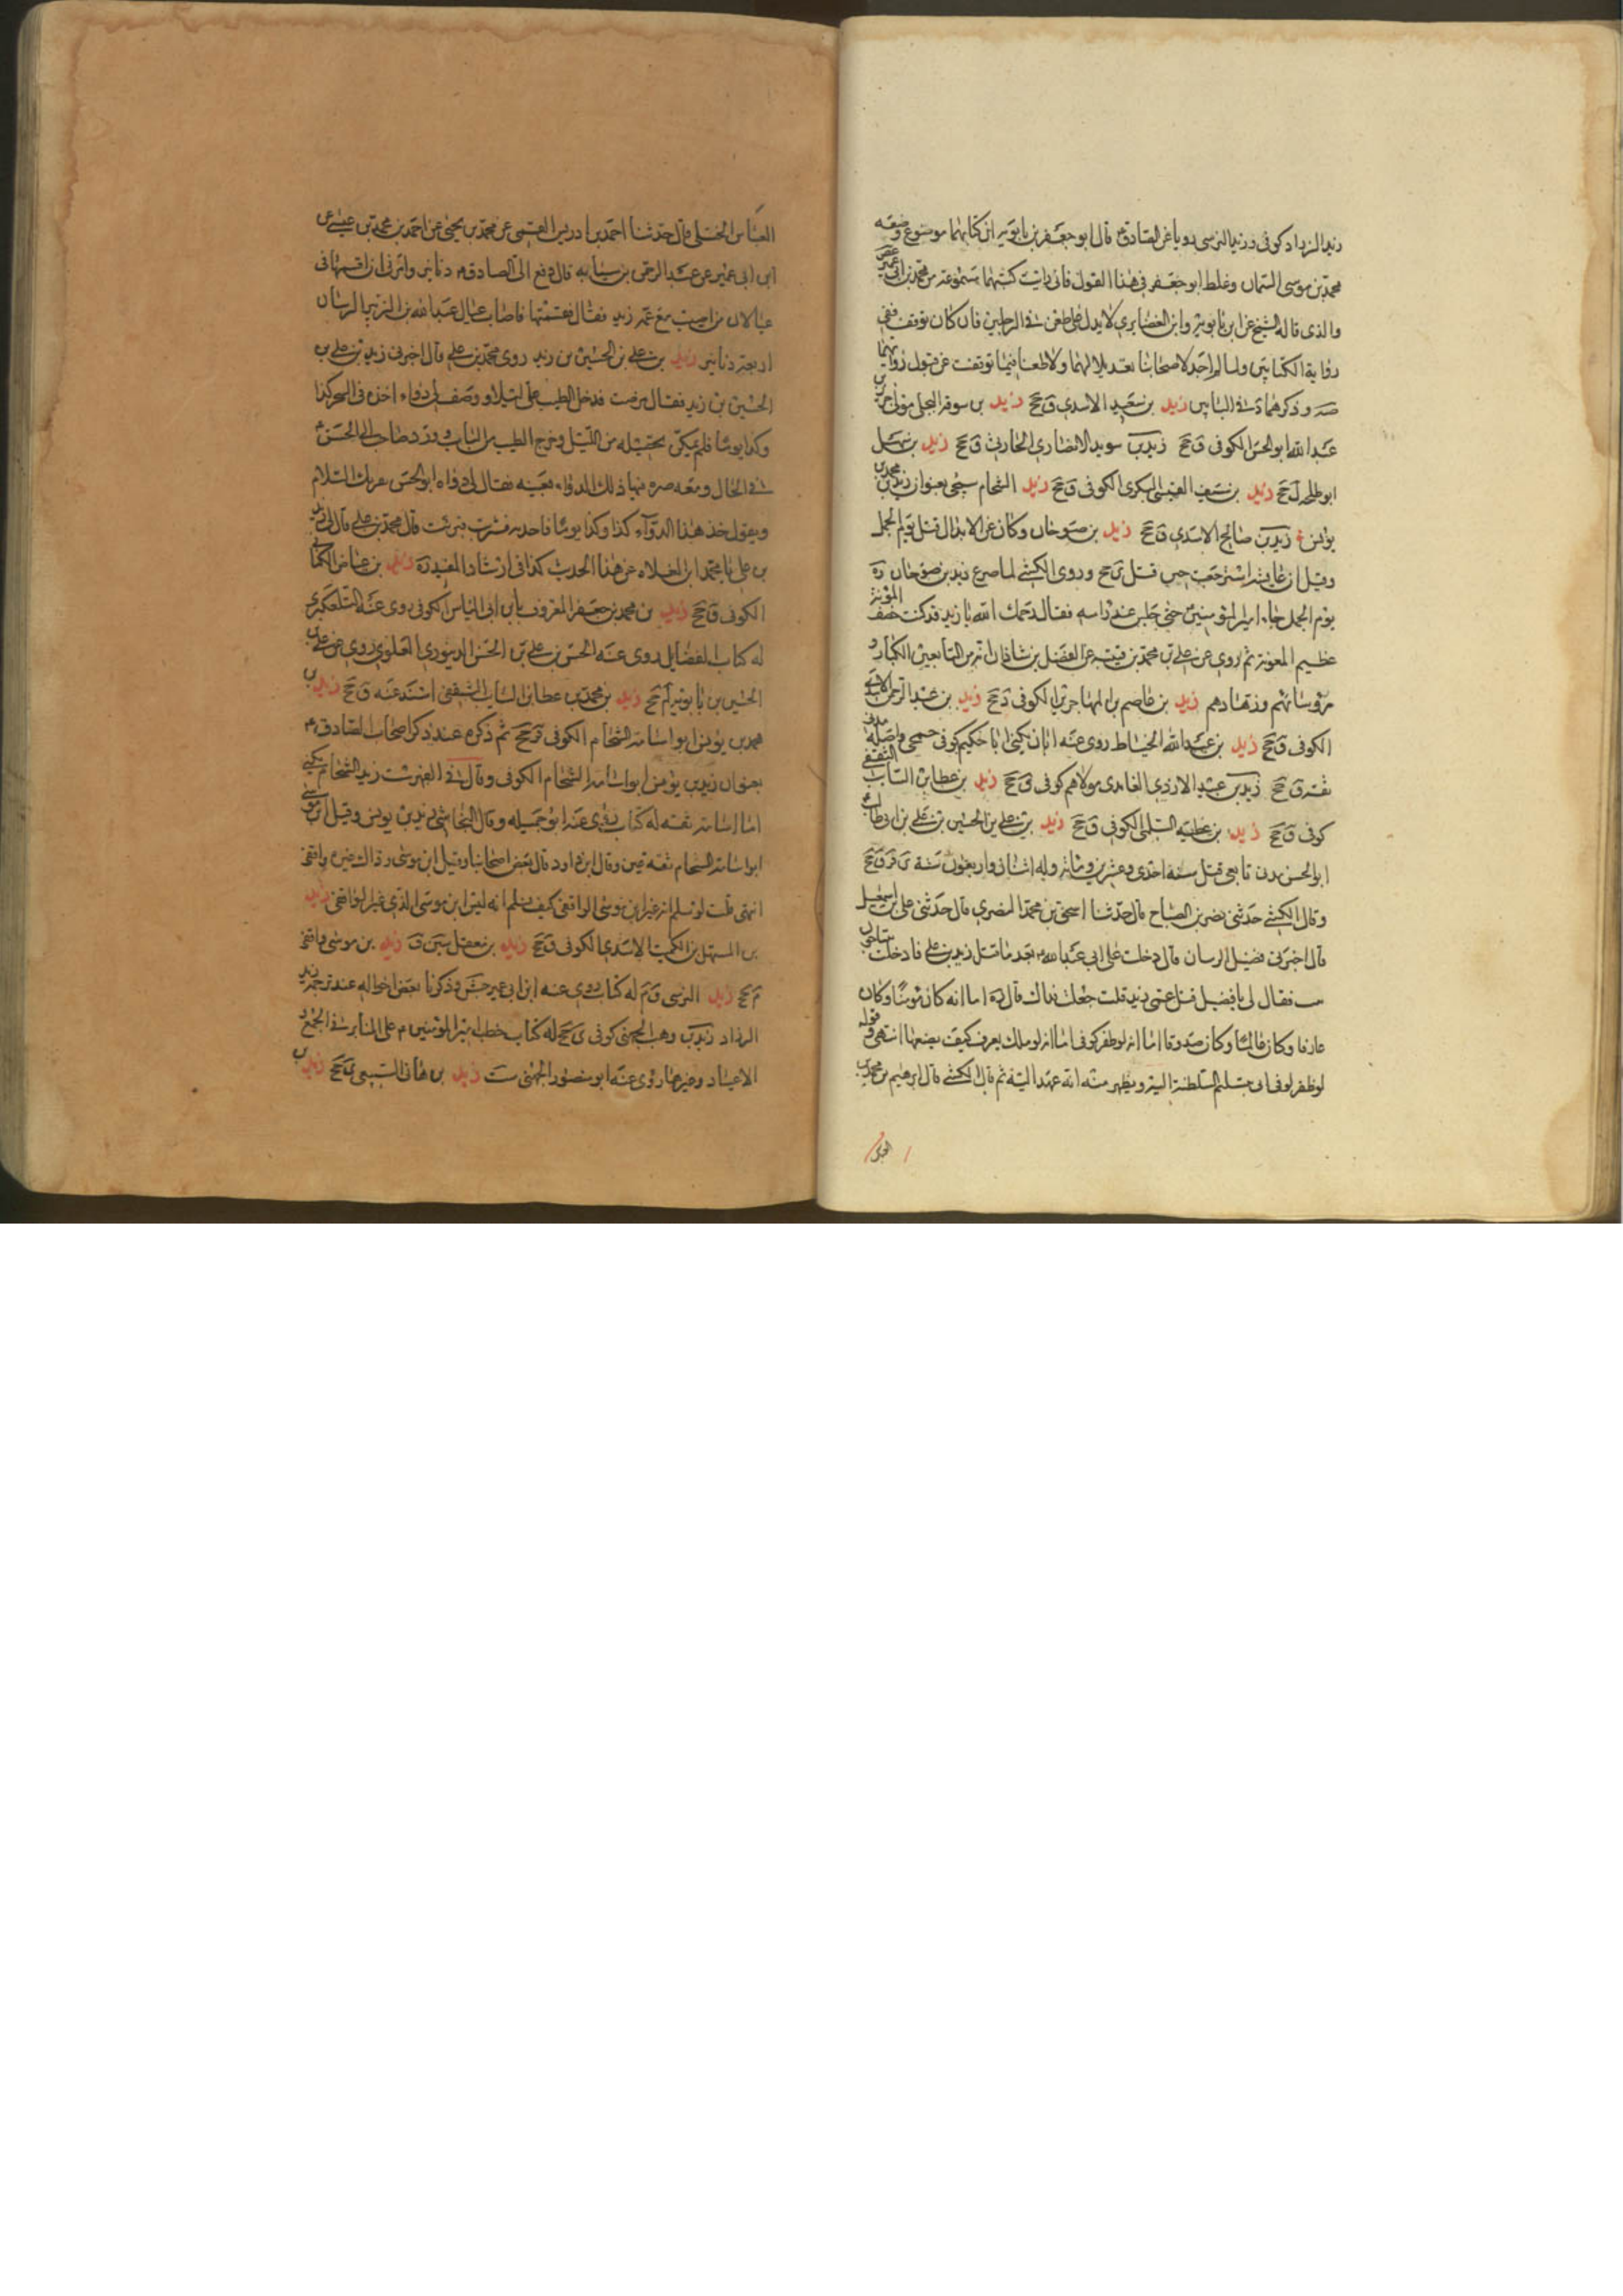 زيد الزراد كوفى وزيد النرسى رويا عن الصادق م قال ابو جعفر بن بابويه ان كتابهما موضوع وضعه
محمد بن موسى السمان وغلط ابو جعفر فى هذا القول فانى رايت كتبهما مسموعة من محمد بن ابى عمير غض
والذى قاله الشيخ عن ابن بابويه وابن الغضايرى لا يدل على طعن فى الرجلين فان كان توقف ففى
رواية الكتابين ولما لم اجد لاصحابنا تعديلا لهما ولا طعنا فيهما توقفت عن قبول روايتهما
صه وذكرهما د فى البابين زيد بن سعيد الاسدى ق جخ زيد بن سوقه البجلى مولى جرير بن
عبد الله ابو الحسن الكوفى ق جخ زيد بن سويد الانصارى الحارثى ق جخ زيد بن سهل
ابو طلحه ل جخ زيد بن سيف القيسى البكرى الكوفى ق جخ زيد الشحام سيجئ بعنوان زيد بن محمد بن
يونس زيد بن صالح الاسدى ق جخ زيد بن صوحان وكان من الابدال قتل يوم الجمل
وقيل ان عايشه استرجعت حين قتل ى جخ وروى الكشى لما صرع زيد بن صوحان ره
يوم الجمل جاء امير المومنين حتى جلس عند راسه فقال رحمك الله يا زيد قد كنت خفيف المؤنة
عظيم المعونة ثم روى عن على بن محمد بن قتيبه عن الفضل بن شاذان انه من التابعين الكبار و
رؤسائهم وزهادهم زيد بن عاصم بن المهاجر نزيل الكوفى د جخ زيد بن عبد الرحمن الاسدى
الكوفى ق جخ زيد بن عبد الله الخياط روى عنه ابان يكنى ابا حكيم كوفى جمحى واصله مدنى
ثقه ق جخ زيد بن عبيد الازدى الغامدى مولاهم كوفى ق جخ زيد بن عطا بن السايب الثقفى
كوفى ق جخ زيد بن عطيه السلمى الكوفى ق جخ زيد بن على بن الحسين بن على بن ابى طالب
ابو الحسن مدنى تابعى قتل سنه احدى وعشرين ومائه وله اثنان واربعون سنة ى قر ق جخ
وقال الكشى حدثنى نصر بن الصباح قال حدثنا اسحق بن محمد البصرى قال حدثنى على بن اسمعيل
قال اخبرنى فضيل الرسان قال دخلت على ابى عبد الله م بعد ما قتل زيد بن على فادخلت
بيتا فقال لى يا فضيل قتل عمى زيد قلت جعلت فداك قال ره اما انه كان مؤمنا وكان
عارفا وكان عالما وكان صدوقا اما انه لو ظفر لوفى اما انه لو ملك يعرف كيف يضعها انتهى وقوله
لو ظفر لوفى اى بتسليم السلطنة اليه ويظهر منه انه عهد اليه ثم قال الكشى قال ابرهيم بن محمد بن
العباس الختلى قال حدثنا احمد بن ادريس القمى عن محمد بن يحيى عن احمد بن محمد بن عيسى عن
ابن ابى عمير عن عبد الرحمن بن سيابه قال دفع الى الصادق م دنانير وامرنى ان اقسمها فى
عيالات من اصيب مع عمه زيد فقال فقسمتها فاصاب عيال عبد الله بن الزبير الرسان
اربعة دنانير زيد بن على بن الحسين بن زيد روى محمد بن على قال اخبرنى زيد بن على بن
الحسين بن زيد فقال مرضت فدخل الطبيب على ليلا ووصف لى دواء اخذه فى السحر كذا
وكذا يوما فلم يمكنى تحصيله من الليل وخرج الطبيب من الباب وورد صاحب ابى الحسن م
فى الحال ومعه صره فيها ذلك الدواء بعينه فقال لى دواه ابو الحسن يقرئك السلام
ويقول خذ هذا الدوآء كذا وكذا يوما فاخذته فشربت فبرئت قال محمد بن على قال لى زيد
بن على يا محمد اين الغلاه عن هذا الحديث كذا فى ارشاد المفيد ره زيد بن عياض الكنانى
الكوفى ق جخ زيد بن محمد بن جعفر المعروف بابن ابى الياس الكوفى روى عنه التلعكبرى
له كتاب الفضايل روى عنه الحسن بن على بن الحسن الدينورى العلوى روى عن على بن
الحسين بن بابويه لم جخ زيد بن محمد بن عطا بن السايب الثقفى اسند عنه ق جخ زيد بن
محمد بن يونس ابو اسامه الشحام الكوفى قر جخ ثم ذكره عند ذكر اصحاب الصادق م
بعنوان زيد بن يونس ابو اسامه الشحام الكوفى وقال فى الفهرست زيد الشحام يكنى
ابا اسامه ثقه له كتاب روى عنه ابو جميله وقال النجاشى زيد بن يونس وقيل ابن موسى
ابو اسامه الشحام ثقه عين وقال ابن داود قال بعض اصحابنا وقيل ابن موسى وذاك غيره واقفى
انتهى قلت لو نسلم انه غير ابن موسى الواقفى كيف نسلم انه ليس ابن موسى الذى غير الواقفى زيد
بن المستهل بن الكميت الاسدى الكوفى ق جخ زيد بن معقل سين ق زيد بن موسى واقفى
م جخ زيد النرسى ق م له كتاب روى عنه ابن ابى عمير جش وذكرنا بعض احواله عند ترجمه زيد
الزراد زيد بن وهب الجهنى كوفى ى جخ له كتاب خطب امير المومنين م على المنابر فى الجمع و
الاعياد وغيرها روى عنه ابو منصور الجهنى ست زيد بن هانى السبيعى ى جخ زيد بن